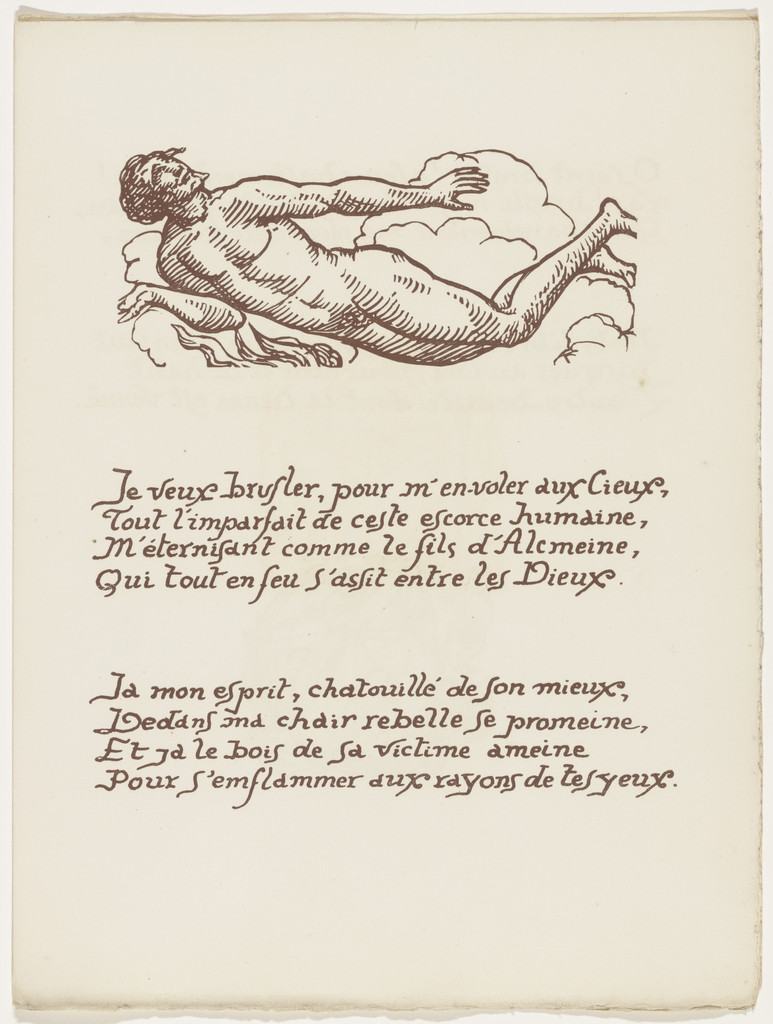 Je veux brusler, pour m'en-voler aux Cieux,
Tout l'imparfait de ceste escorce humaine,
M'éternisant comme le fils d'Alcmeine,
Qui tout en feu s'assit entre les Dieux.
Ja mon esprit, chatouillé de son mieux,
Dedans ma chair rebelle se promeine,
Et ja le bois de sa victime ameine
Pour s'emflammer aux rayons de tes yeux.